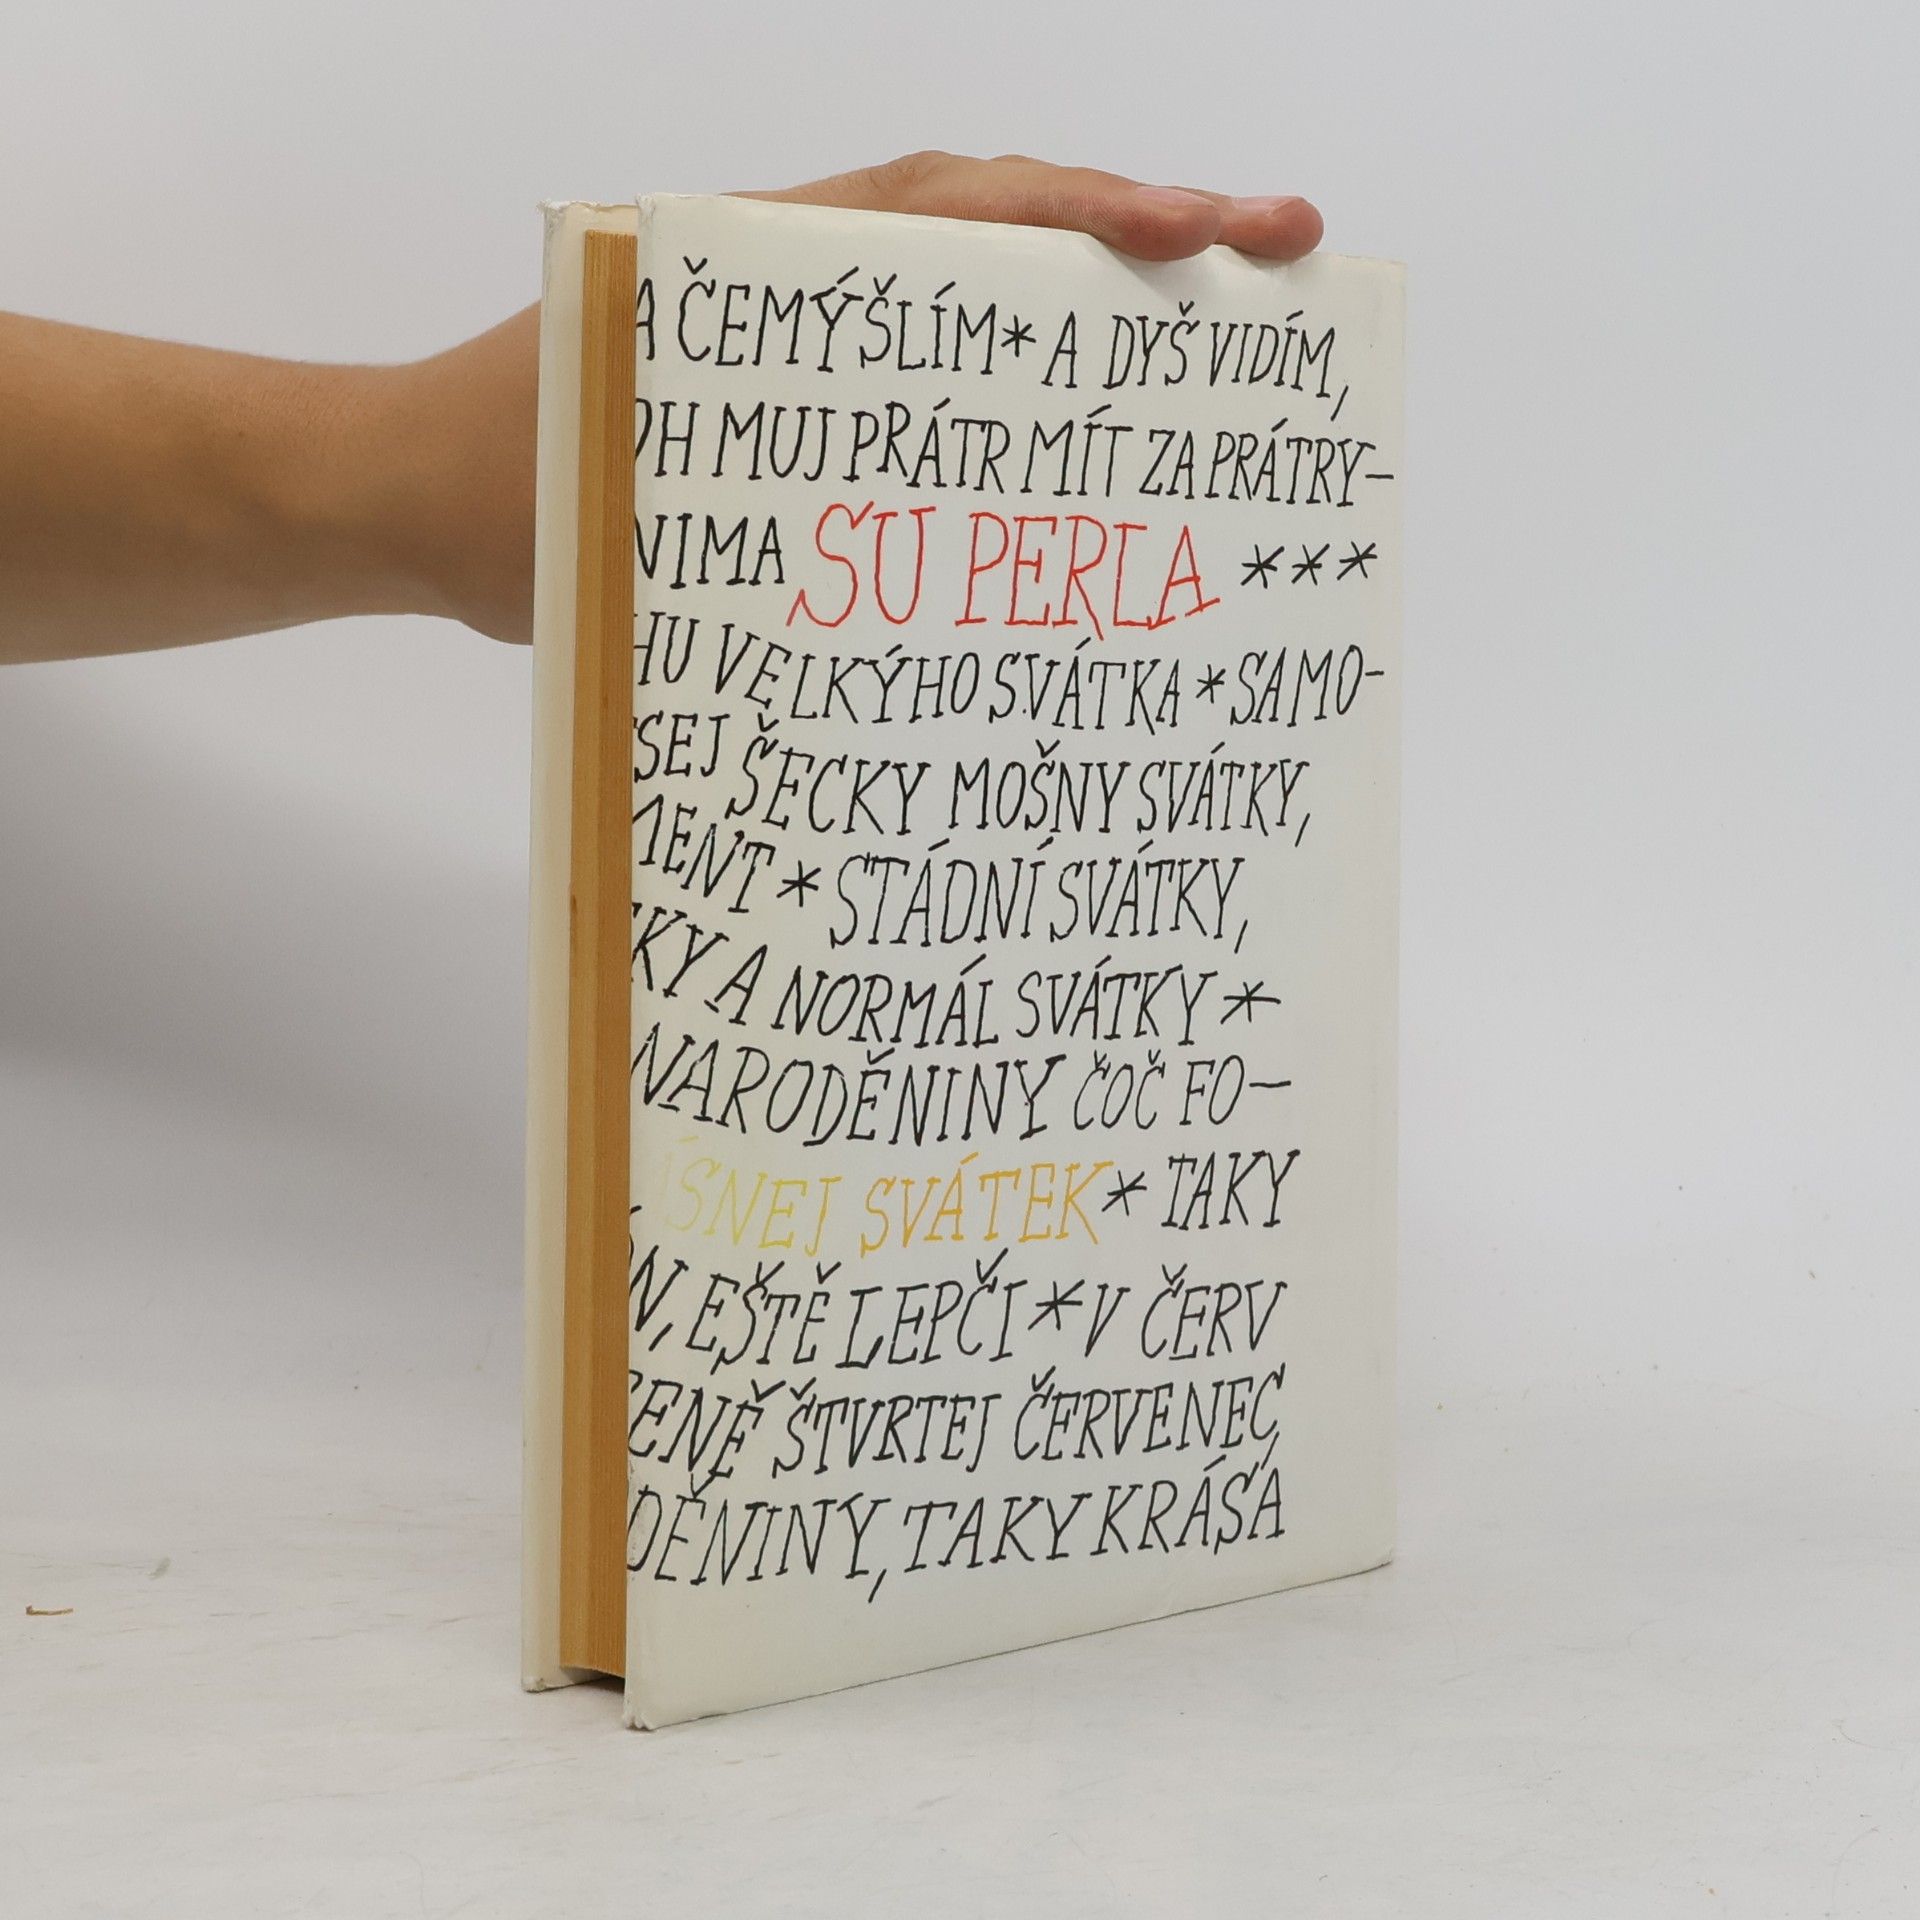 A ČEMÝŠLÍM * A DYŠ VIDÍM,
OH MUJ PRÁTR MÍT ZA PRÁTRY-
NIMA SU PERLA ***
HU VELKÝHO SVÁTKA * SAMO-
SEJ ŠECKY MOŠNY SVÁTKY,
MENT * STÁDNÍ SVÁTKY,
KY A NORMÁL SVÁTKY *
NARODĚNINY ČOČ FO-
ÍSNEJ SVÁTEK * TAKY
N, EŠTĚ LEPČI * V ČERV
ENĚ ŠTVRTEJ ČERVENEC,
DĚNINY, TAKY KRÁSÁ